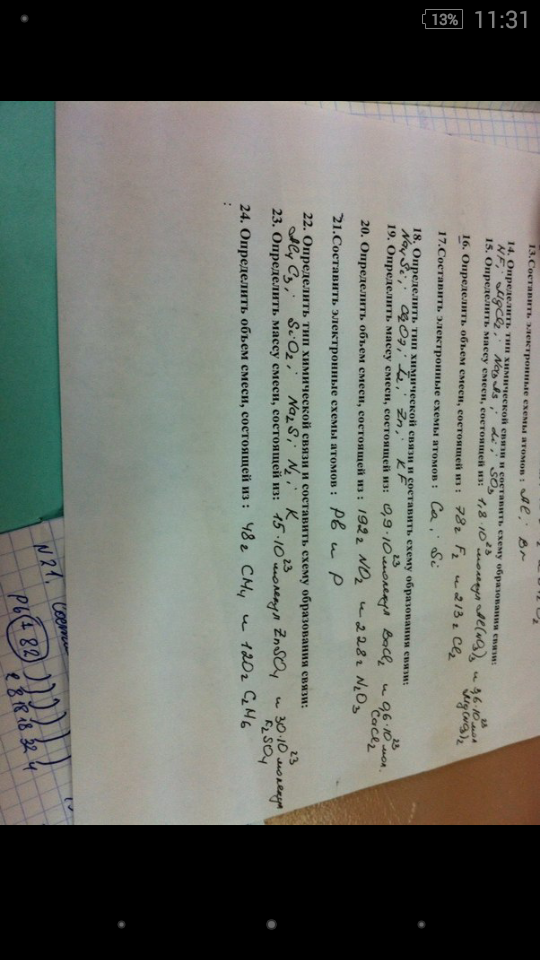 13%
11:31
13. Составить электронные схемы атомов : Al; Br
14. Определить тип химической связи и составить схему образования связи:
MgCl₂; Na₃As; Li; SO₃
15. Определить массу смеси, состоящей из: 1,8·10²³ молекул Al(NO₃)₃ и 3,6·10²³ мол
Mg(NO₃)₂
16. Определить объем смеси, состоящей из : 78 г F₂ и 213 г Cl₂
17. Составить электронные схемы атомов : Ca; Si
18. Определить тип химической связи и составить схему образования связи:
Na₄Si; Cl₂O₇; I₂; Zn; KF
19. Определить массу смеси, состоящей из: 0,9·10²³ молекул BaCl₂ и 0,6·10²³ мол.
CaCl₂
20. Определить объем смеси, состоящей из : 192 г NO₂ и 228 г N₂O₃
21. Составить электронные схемы атомов : Pb и P
22. Определить тип химической связи и составить схему образования связи:
Al₄C₃; SiO₂; Na₂S; N₂; K
23. Определить массу смеси, состоящей из: 15·10²³ молекул ZnSO₄ и 30·10²³ молекул
F₂SO₄
24. Определить объем смеси, состоящей из : 48 г CH₄ и 120 г C₂H₆
:
N21.
Pb + 82 ) ) ) ) ) )
2 8 18 18 32 4